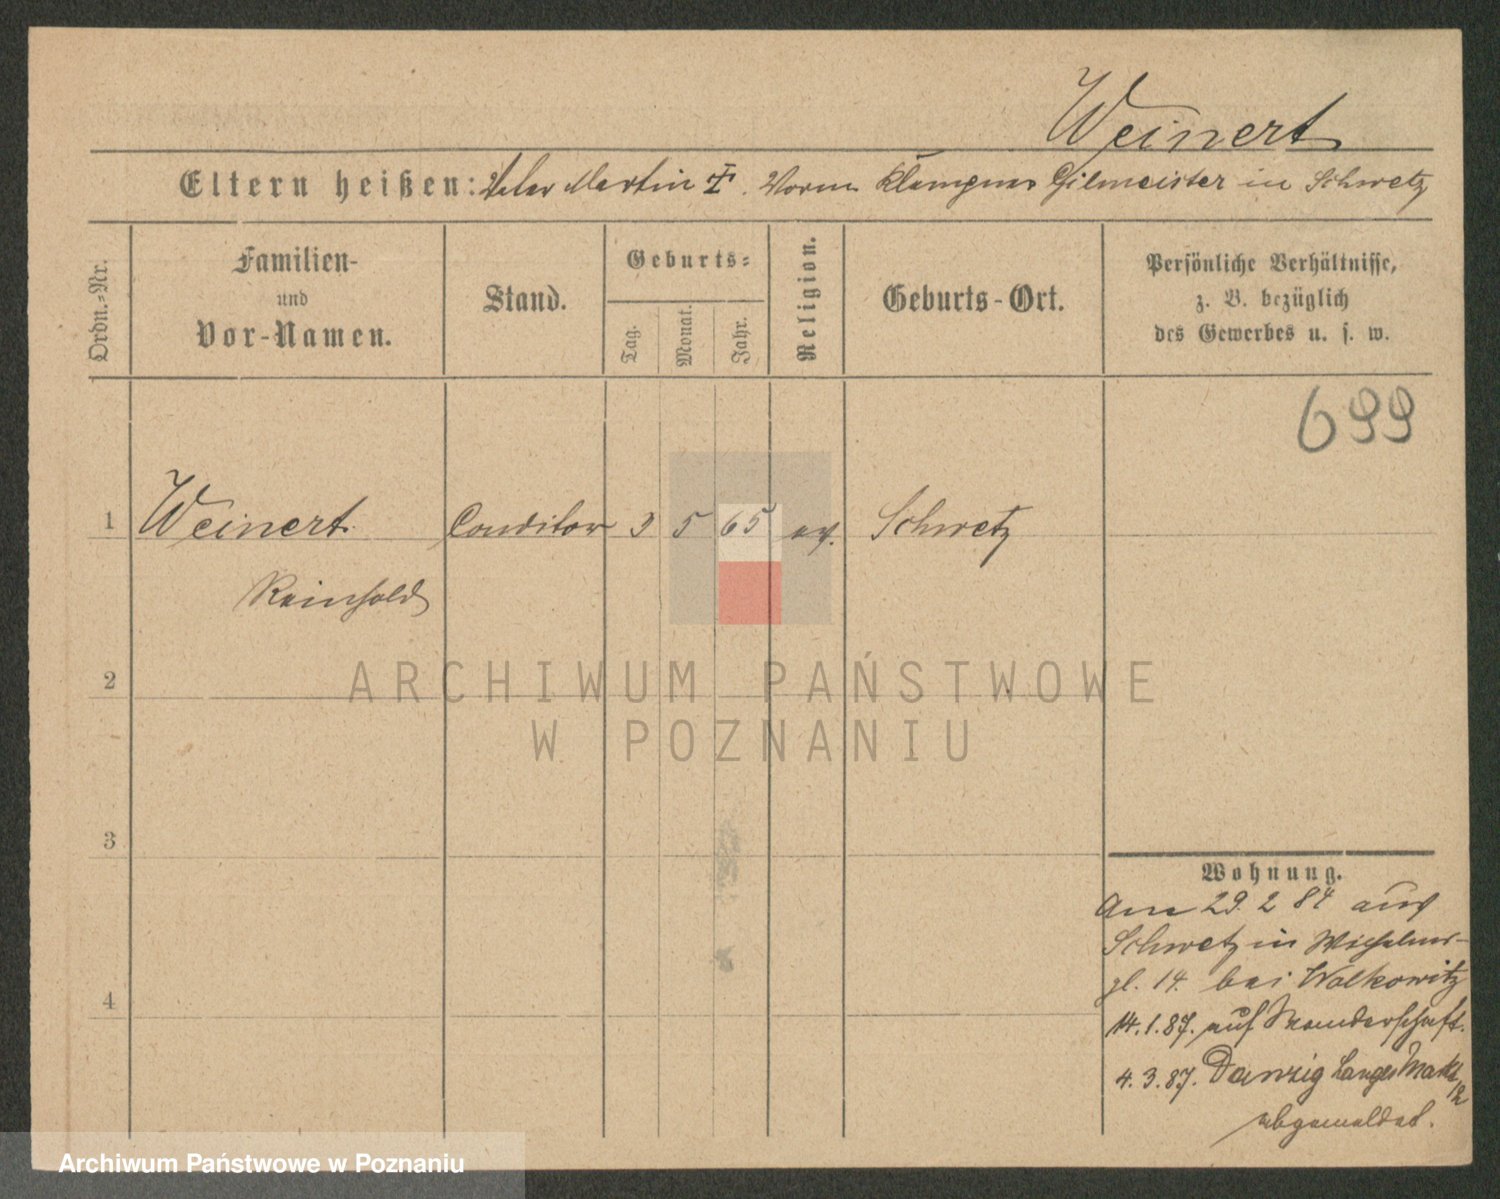 Weinert
Eltern heißen: Vater Martin in Schwetz
Ordn.-Nr.
Familien-
und
Vor-Namen.
Stand.
Geburts-
Tag.
Monat.
Jahr.
Religion.
Geburts-Ort.
Persönliche Verhältnisse,
z. B. bezüglich
des Gewerbes u. s. w.
699
1 Weinert Conditor 3 5 65 ev. Schwetz
Reinhold
2
3
4
Wohnung.
Am 29. 2 84 aus
Schwetz in Wilhelms-
pl. 14. bei Walkowitz
14. 1. 87. auf Wanderschaft.
4. 3. 87. Danzig Langer Markt
12
abgemeldet.
ARCHIWUM PAŃSTWOWE
W POZNANIU
Archiwum Państwowe w Poznaniu